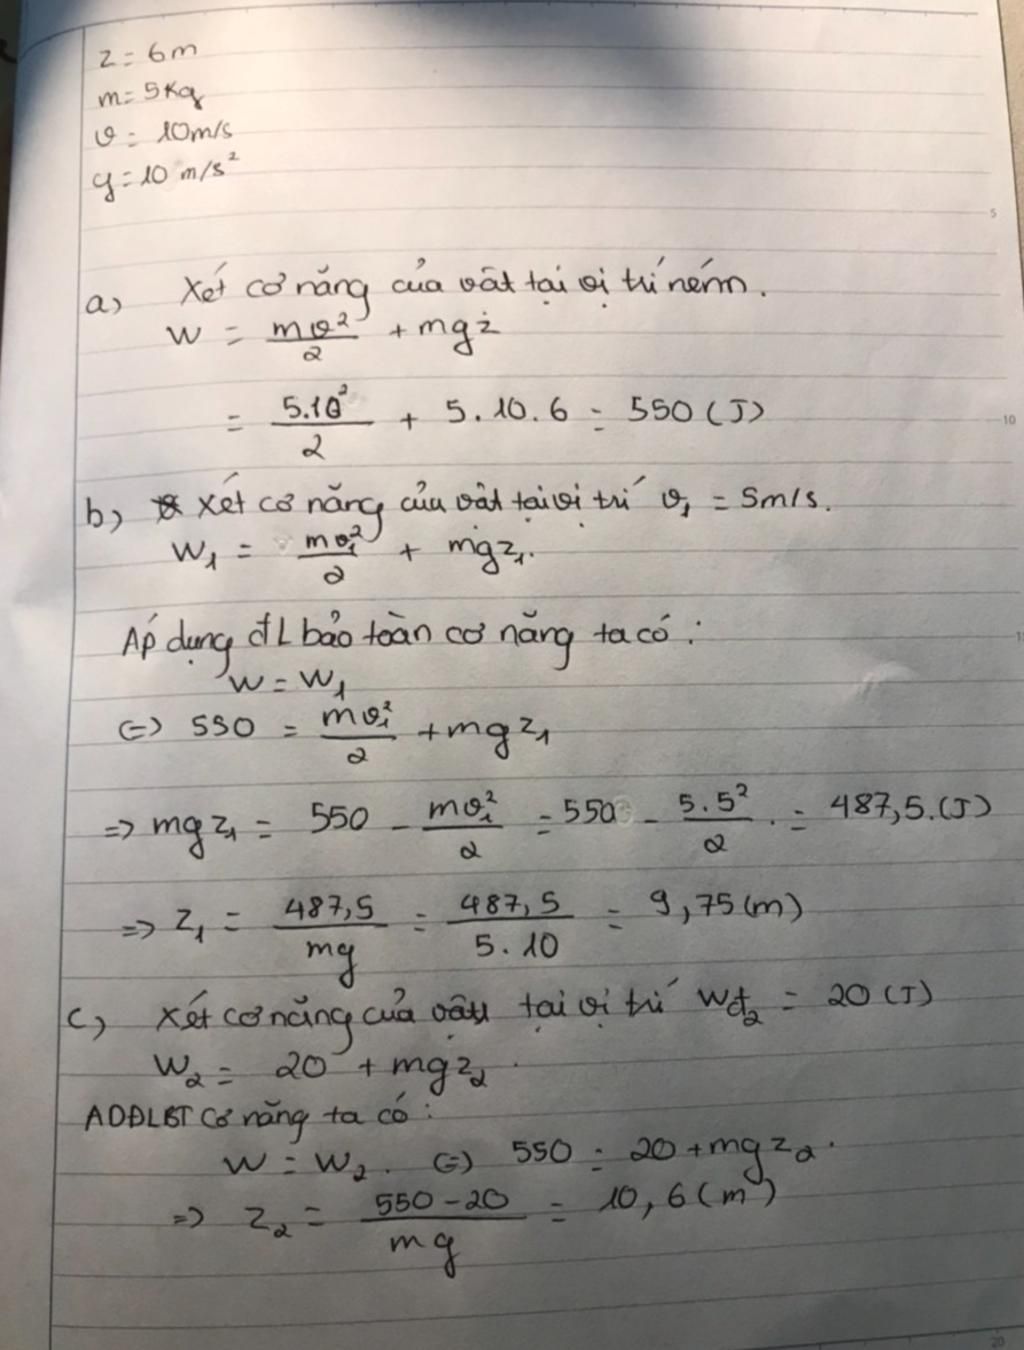 z = 6m
m = 5Kg
v = 10m/s
g = 10 m/s²
5
a) Xét cơ năng của vật tại vị trí ném.
W = mv²/2 + mgz
= 5.10²/2 + 5.10.6 = 550 (J)
10
b) Xét cơ năng của vật tại vị trí v₁ = 5m/s.
W₁ = mv₁²/2 + mgz₁.
Áp dụng đL bảo toàn cơ năng ta có:
W = W₁
⇔ 550 = mv₁²/2 + mgz₁
=> mgz₁ = 550 - mv₁²/2 = 550 - 5.5²/2 = 487,5.(J)
=> z₁ = 487,5/mg = 487,5/5.10 = 9,75(m)
c) Xét cơ năng của vật tại vị trí Wđ₂ = 20 (J)
W₂ = 20 + mgz₂.
ADĐLBT cơ năng ta có:
W = W₂. ⇔ 550 = 20 + mgz₂.
=> z₂ = 550-20/mg = 10,6(m)
20